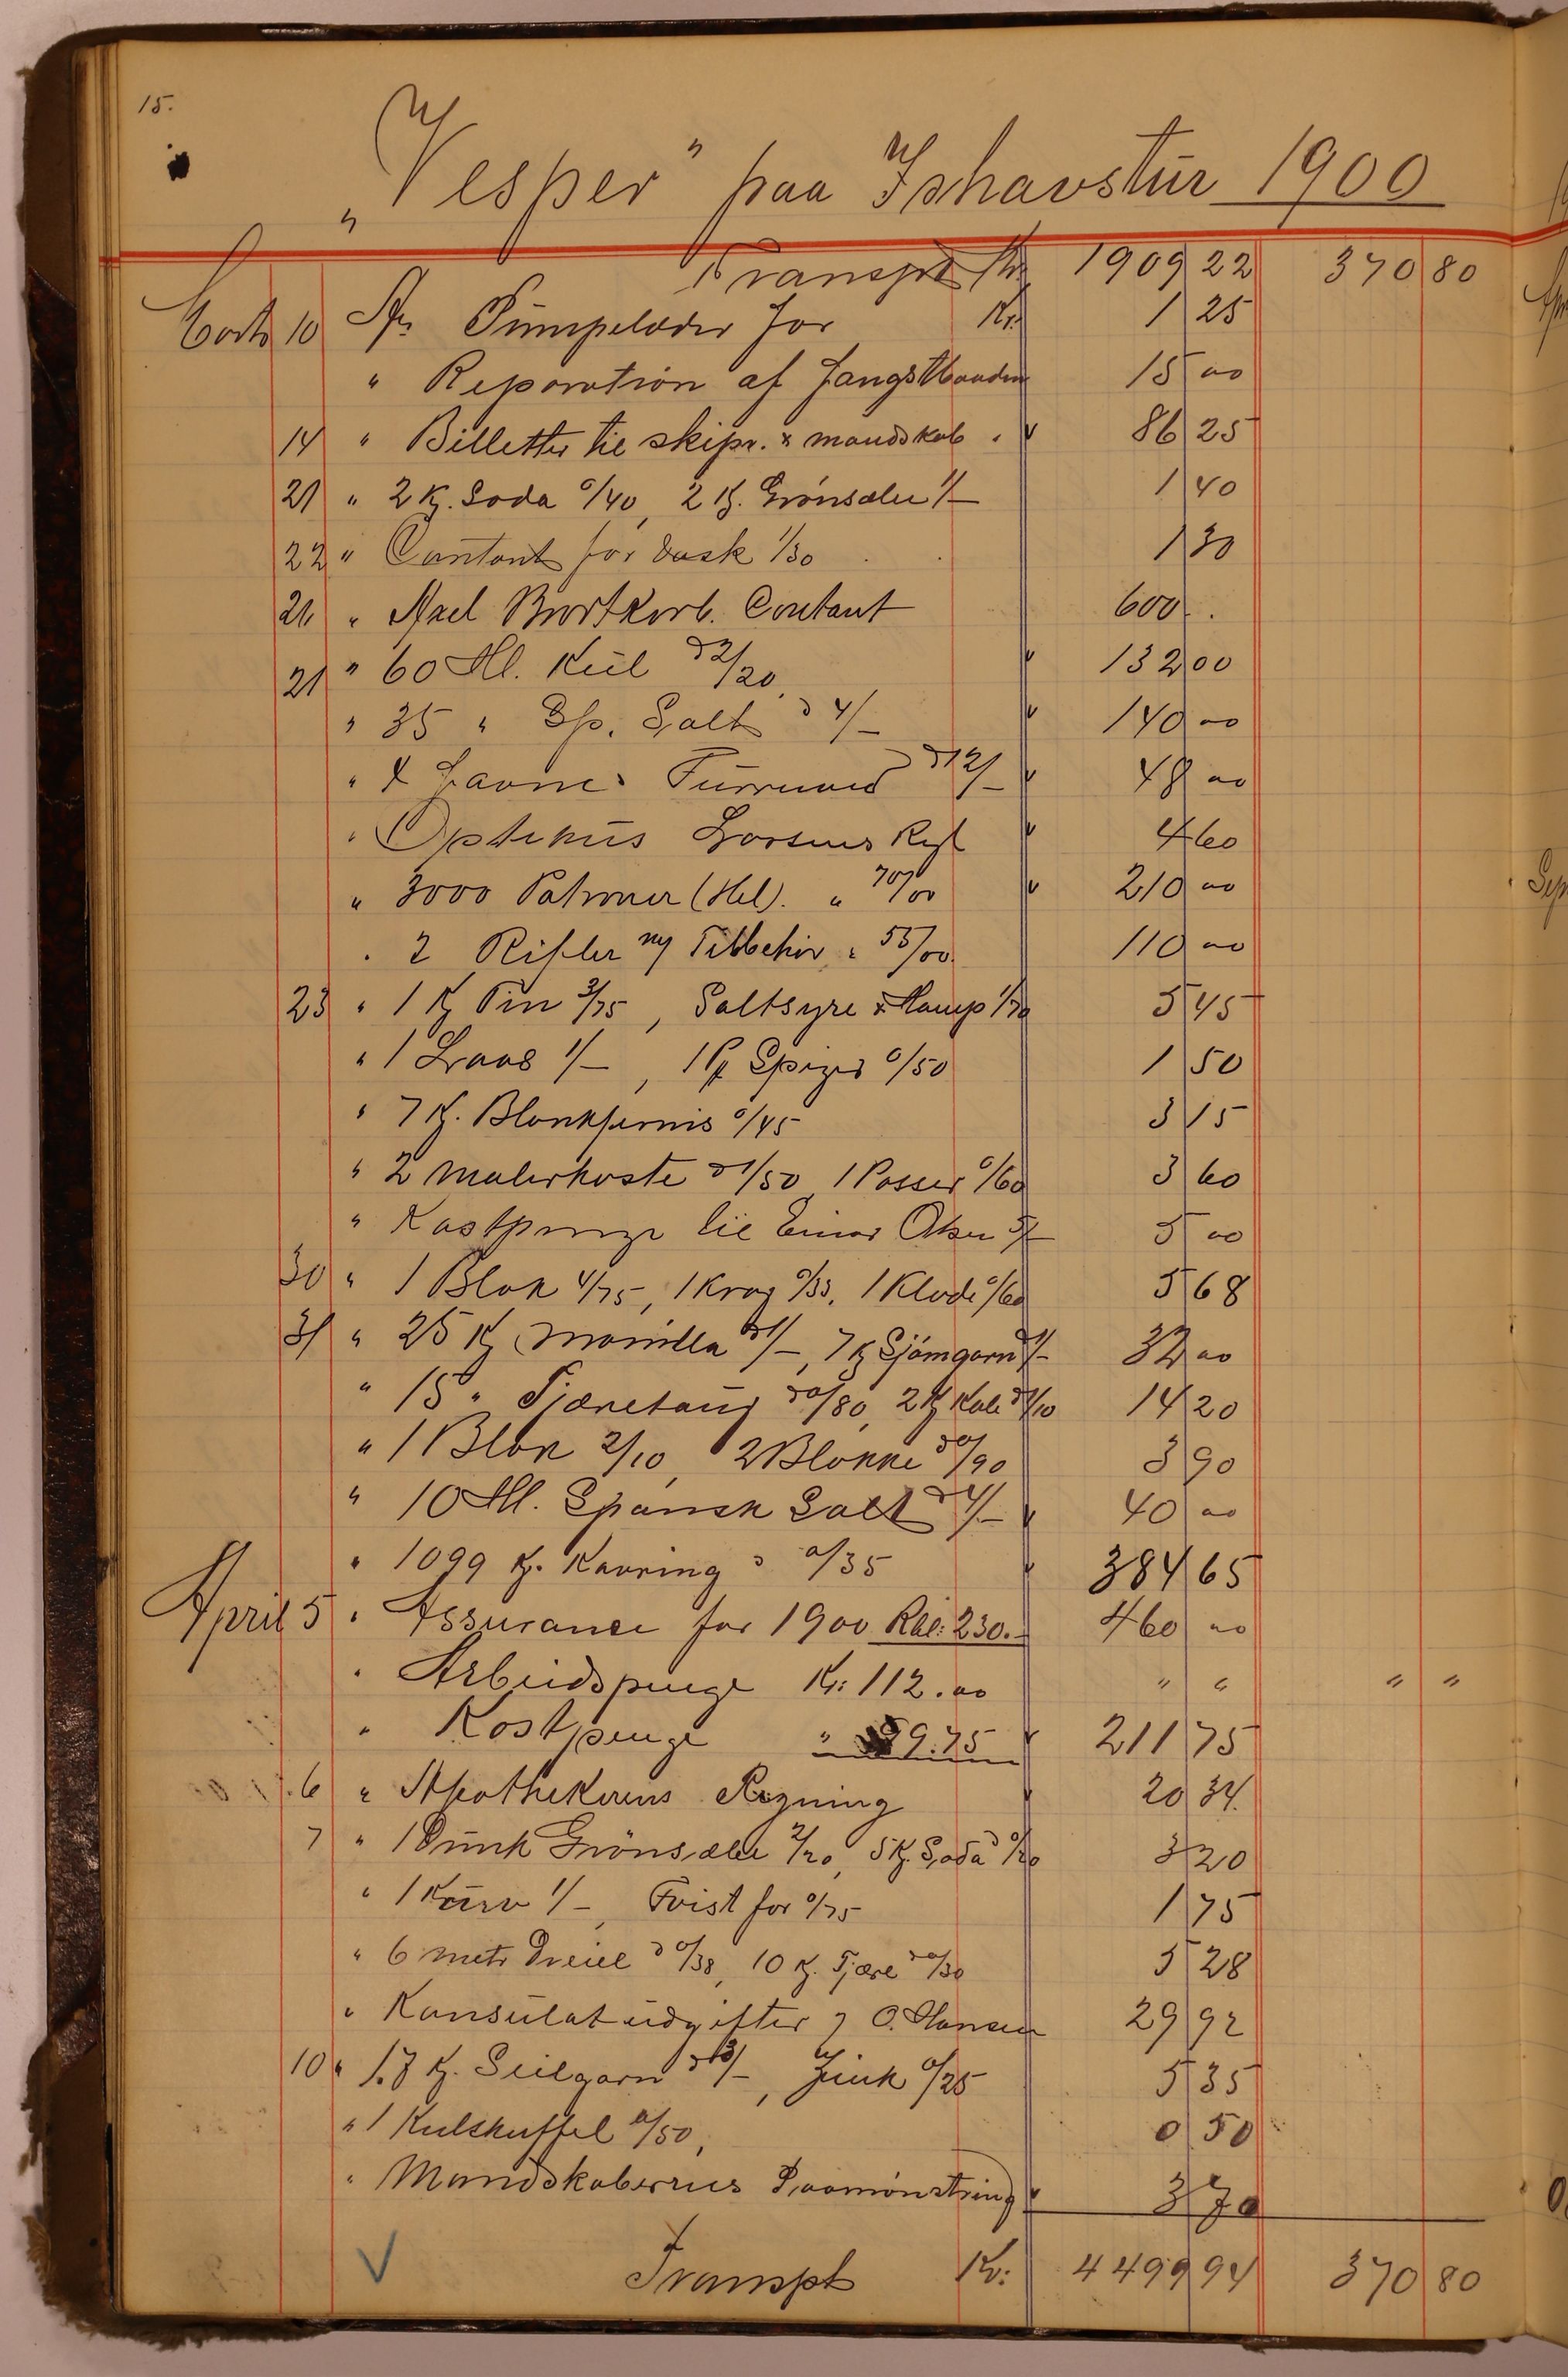 15.
„Vesper" paa Ishavstur 1900
Transpt Kr. 1909 22 370 80
Marts 10 An Pumpelæder for Kr. 1 25
" Reparation af Fangstbaaden 15 00
14 " Billetter til skipr. & mandskab " 86 25
21 " 2 Kg. Soda 0/40, 2 Kg. Grønsæbe 1/– 1 40
22 " Contant for Vask 1/30 1 30
21 " Axel Contant 600 .
21 " 60 Hl. Kul à 2/20 132 00
" 35 " Sp. Salt à 4/– 140 00
" 4 Favne Furruved à 12/– 48 00
" Optikus Larsens Regn 4 60
" 3000 Patroner (Hel). " 70/00 210 00
" 2 Rifler m/ Tilbehør " 55/00 110 00
23 " 1 Kg Tin 3/75, Saltsyre & Hamp 1/70 5 45
" 1 Laas 1/–, 1 Pk Spiger 0/50 1 50
" 7 Kg. Blankfernis 0/45 3 15
" 2 Malerkoste à 1/50 1 Passer 0/60 3 60
" Kostpenge til Einar Olsen 5/– 5 00
30 " 1 Blok 4/75, 1 Krog 0/33, 1 Klode 0/60 5 68
31 " 25 Kg Manilla à 1/–, 7 Kg Sjömgarn à 1/– 32 00
" 15 " Tjæretaug à 0/80, 2 Kg à 1/10 14 20
" 1 Blok 2/10, 2 Blokke à 0/90 3 90
" 10 Hl. Spansk Salt à 4/– 40 00
" 1099 Kg. Kavring à 0/35 384 65
April 5 " Assurance for 1900 Rbl: 230.– 460 00
" Arbeidspenge Kr: 112.00 " " " "
" Kostpenge " 99.75 211 75
6 " Apothekerens Regning 20 34
7 " 1 Dunk Grönsæbe 2/20, 5 Kg. Soda à 0/20 3 20
" 1 Kurv 1/–, Tvist for 0/75 1 75
" 6 metr Dreiel à 0/38, 10 Kg. Tjære à 0/30 5 28
" Konsulatudgifter O. Hansen 29 92
10 " 1.7 Kg. Seilgarn à 3/–, Zink 0/25 5 35
" 1 Kulskuffel 0/50, 0 50
" Mandskabernes Paamønstring 3 70
Transpt Kr: 4499 94 370 80